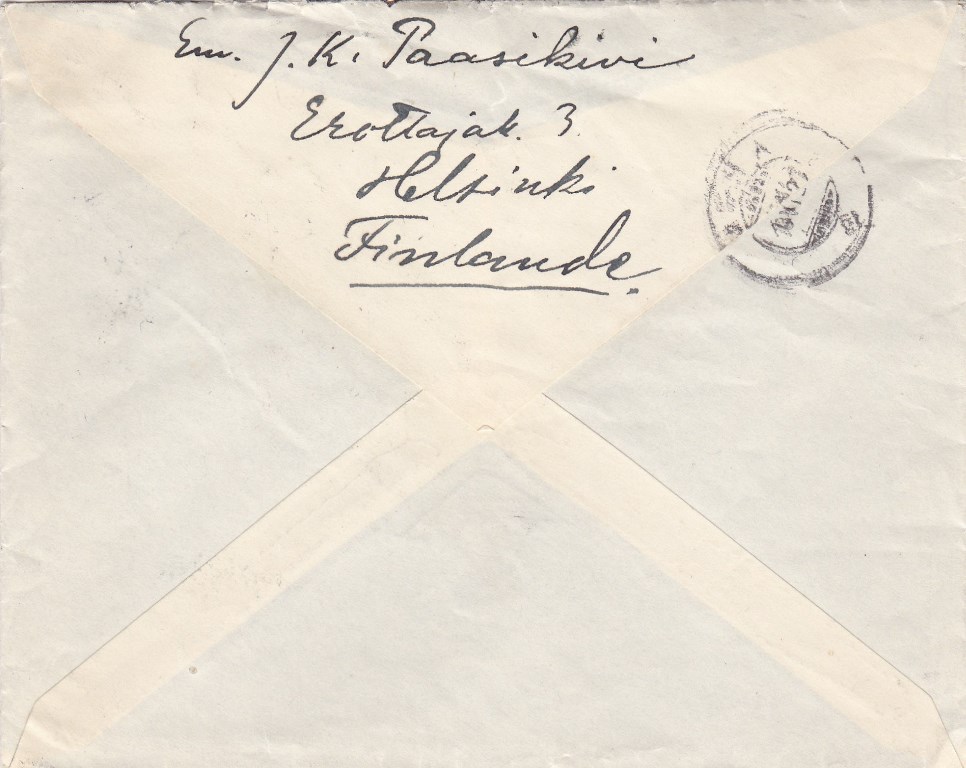 Em. J. K. Paasikivi
Erottajak. 3.
Helsinki
Finlande.